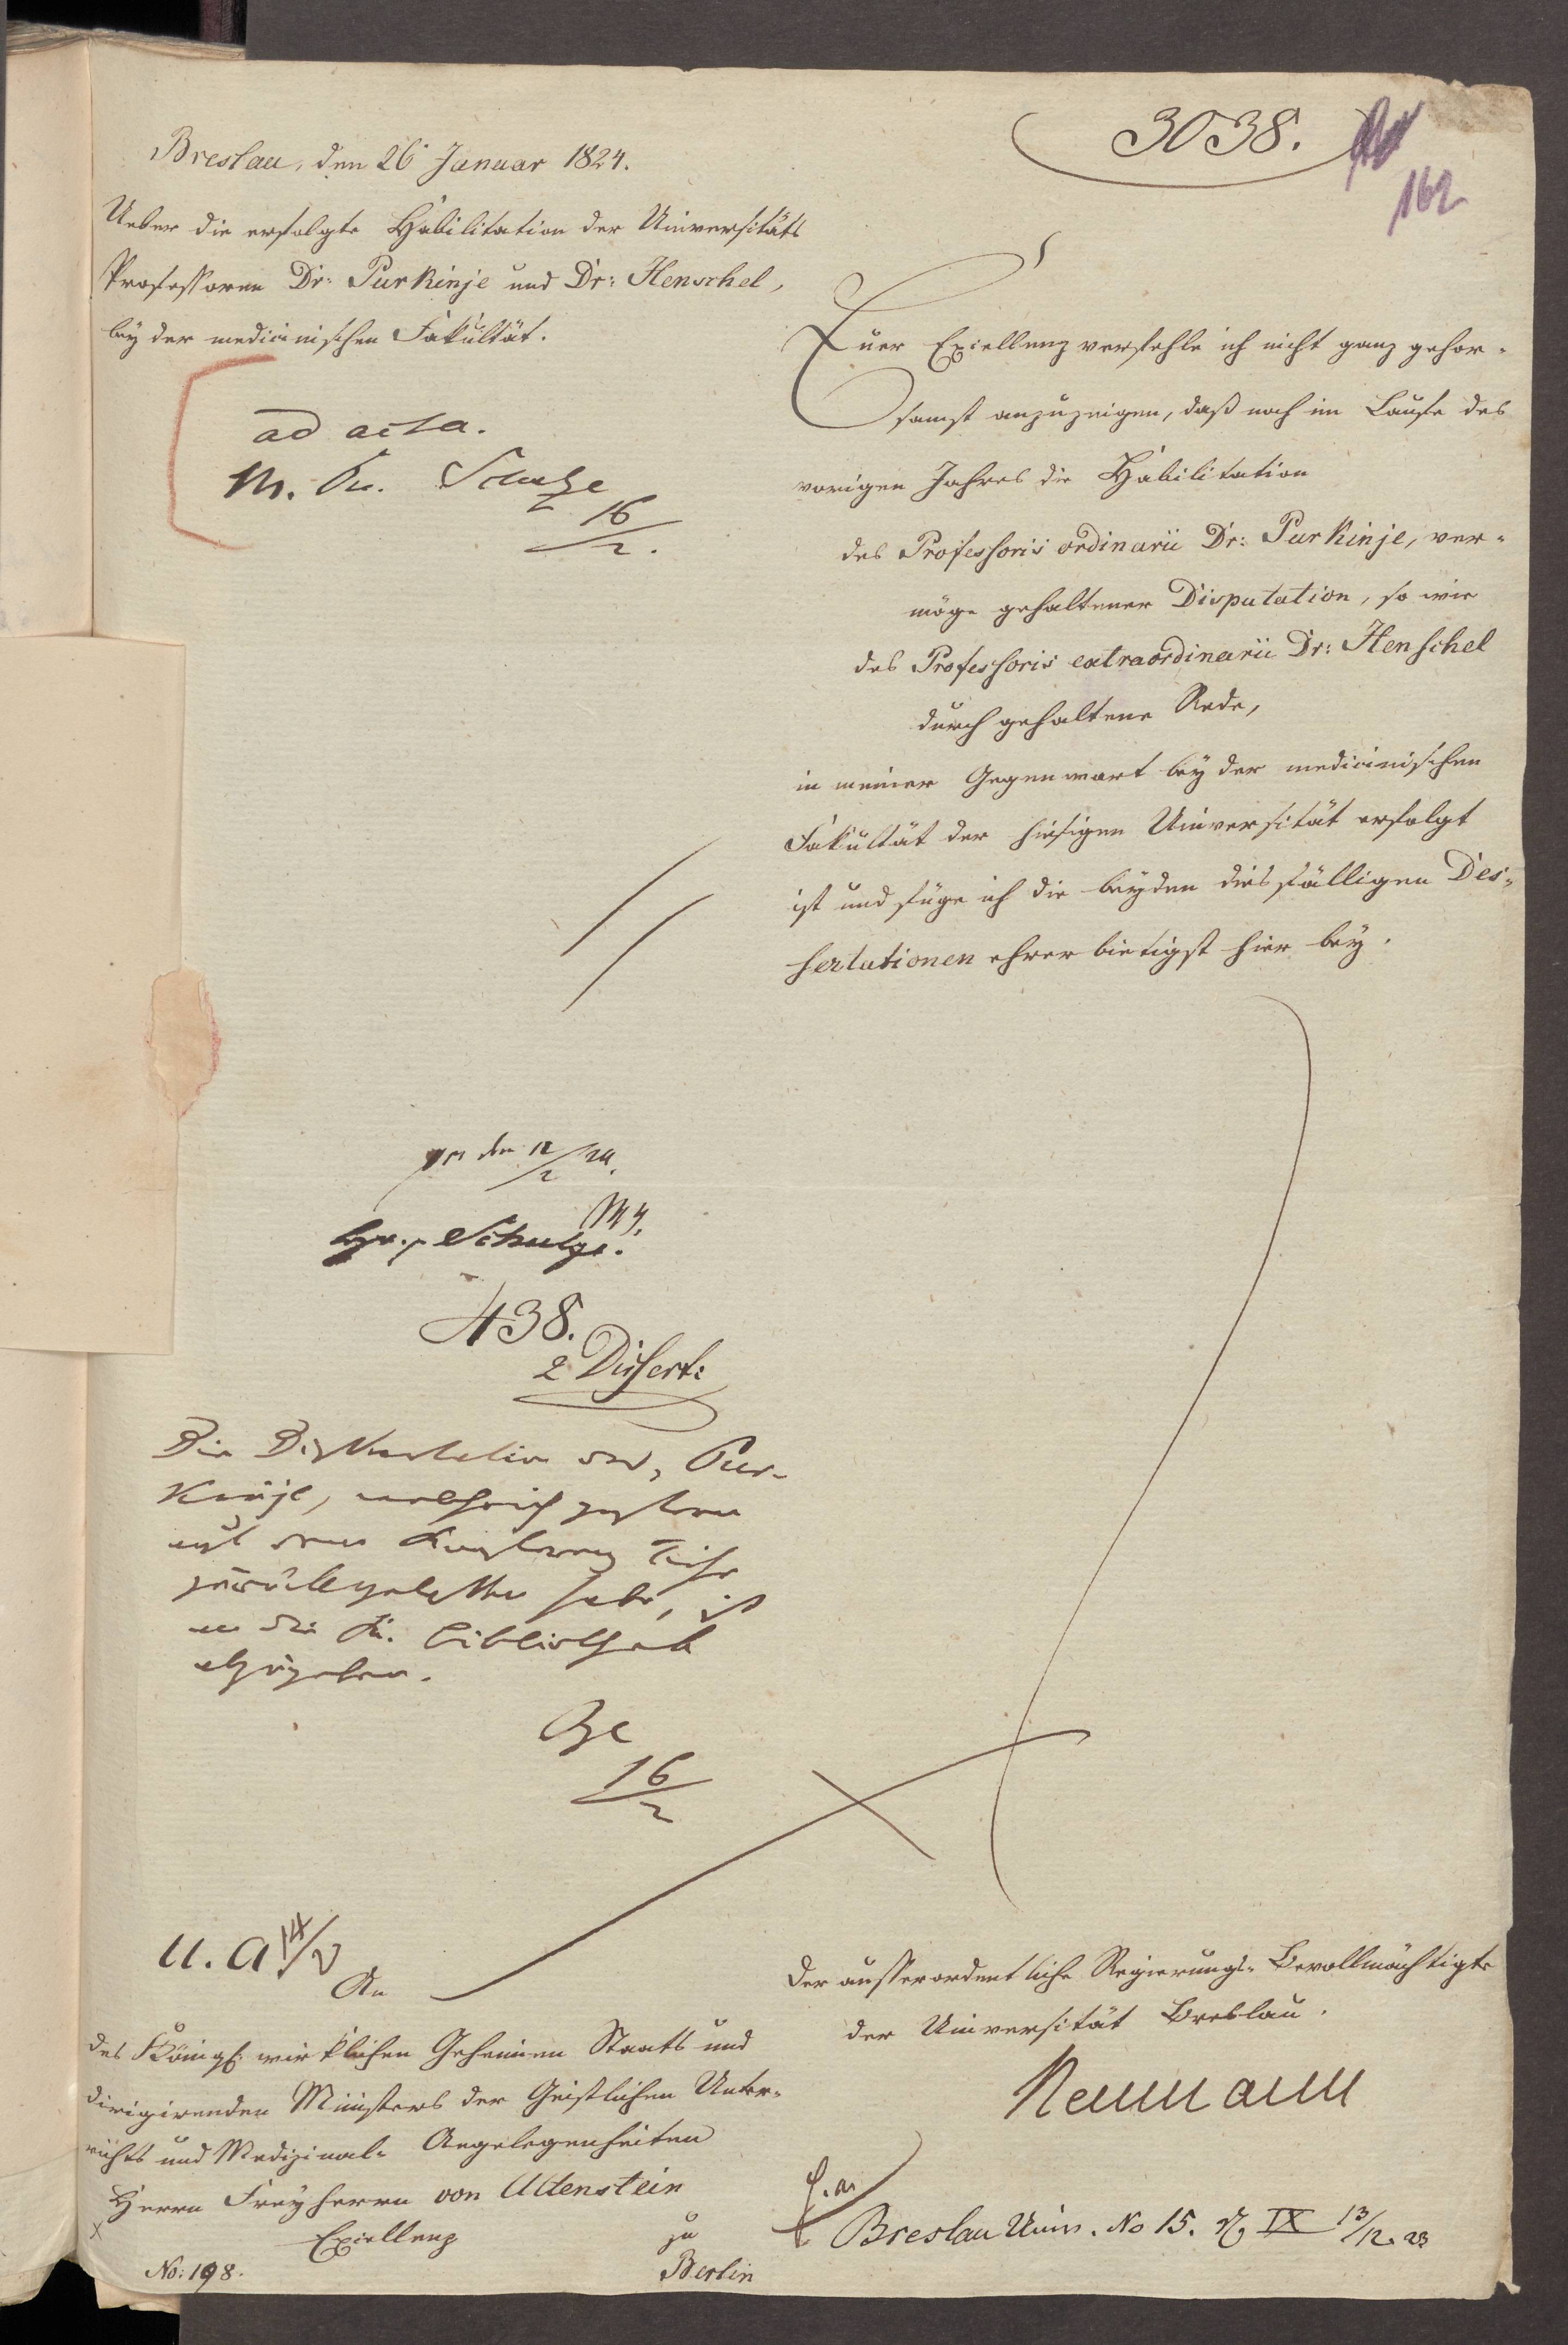 3038.
162
Breslau, den 26 Januar 1824.
Ueber die erfolgte Habilitation der Universitäts
Professoren Dr: Purkinje und Dr: Henschel,
bey der medicinischen Fakultät.
ad acta.
Schulze
16/2.
Euer Excellenz verfehle ich nicht ganz gehor-
samst anzuzeigen, daß noch im Laufe des
vorigen Jahres die Habilitation
des Professoris ordinarii Dr: Purkinje, ver-
möge gehaltener Disputation, so wie
des Professoris extraordinarii Dr: Henschel
durch gehaltene Rede,
in meiner Gegenwart bey der medicinischen
Fakultät der hiesigen Universität erfolgt
ist und füge ich die beyden diesfälligen Des-
sertationen ehrerbietigst hier bey.
den 12/2 24.
H. Schulze.
438.
2 Dissert:
Die Dissertation des Pur-
kinje, welche ich gestern
zurückgehalten habe, ist
an die K. Bibliothek
abzugeben.
16/2
u. a 14/2
An
des Königl. wirklichen Geheimen Staats und
dirigirenden Ministers der Geistlichen Unter-
richts und Medizinal- Angelegenheiten
Herrn Freyherrn von Altenstein
Excellenz
zu
Berlin
No: 198.
Der ausserordentliche Regierungs-Bevollmächtigte
der Universität Breslau.
Neumann
Breslau Univ. No 15. IX 13/12. 23